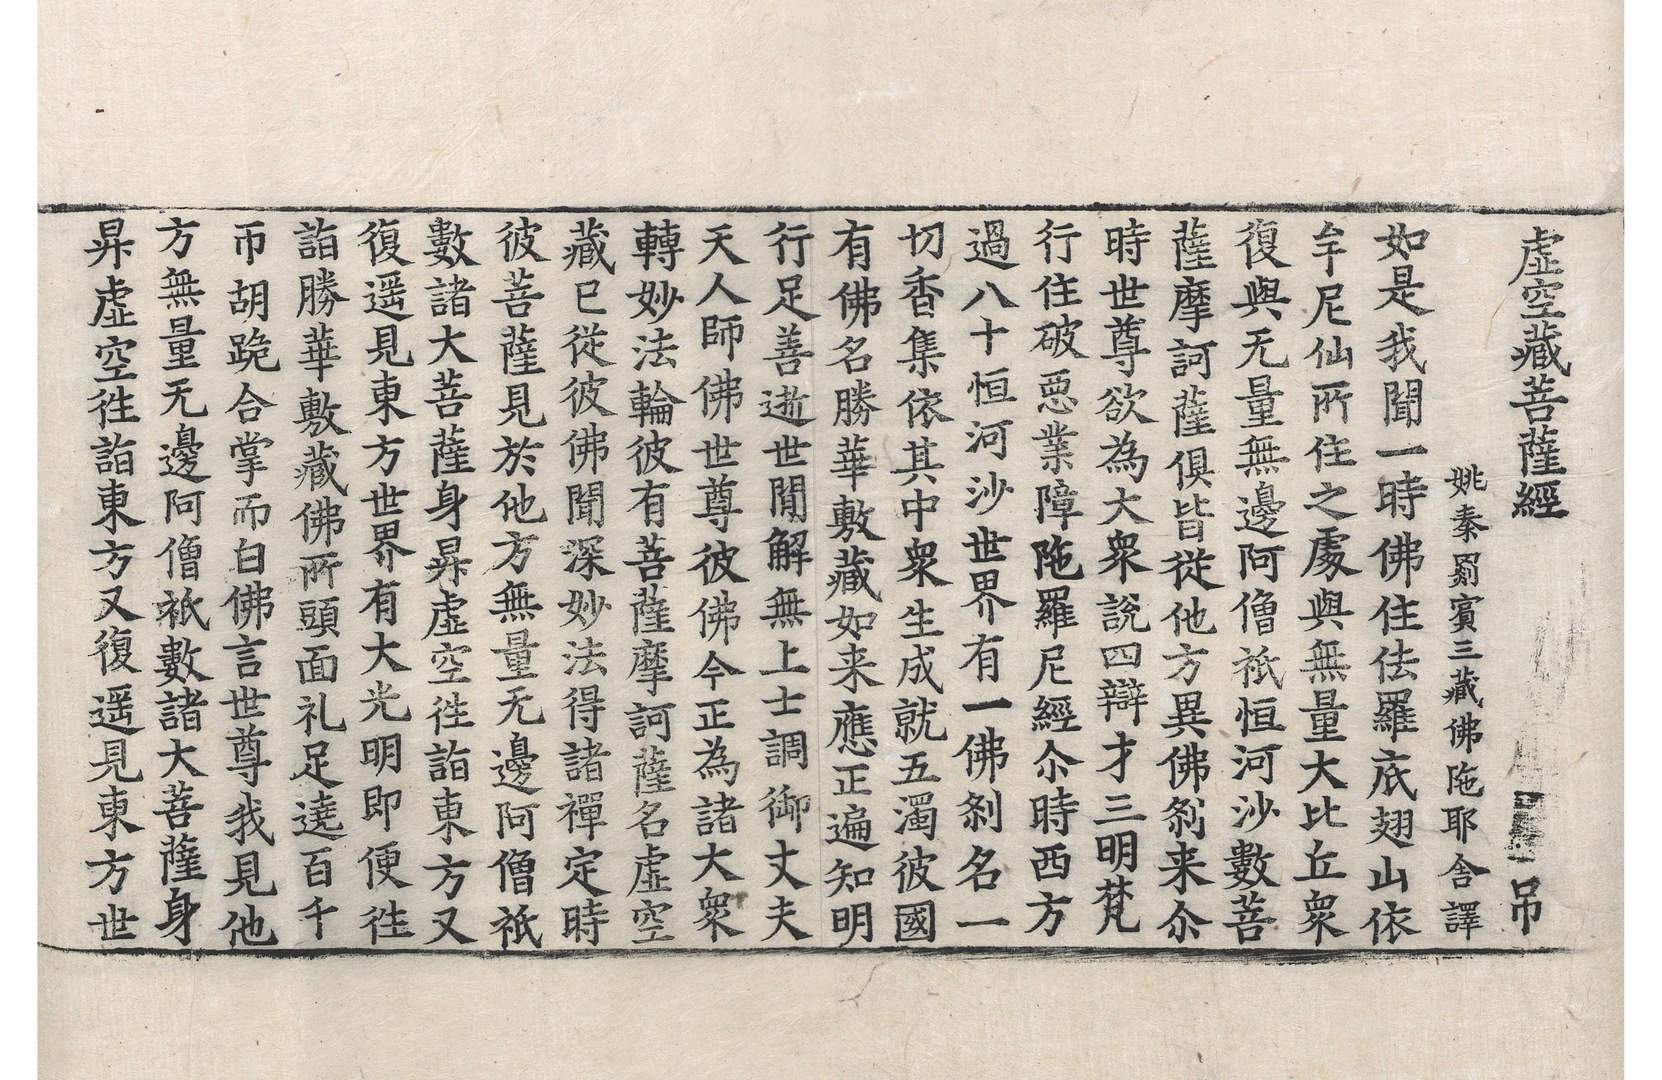 虛空藏菩薩經 弔
姚秦罽賓三藏佛陁耶舍譯
如是我聞一時佛住佉羅底翅山依
牟尼仙所住之處與無量大比丘衆
復與无量無邊阿僧祇恒河沙數菩
薩摩訶薩俱皆從他方異佛剎来尒
時世尊欲為大衆說四辯才三明梵
行住破惡業障陁羅尼經尒時西方
過八十恒河沙世界有一佛剎名一
切香集依其中衆生成就五濁彼國
有佛名勝華敷藏如来應正遍知明
行足善逝世間解無上士調御丈夫
天人師佛世尊彼佛今正為諸大衆
轉妙法輪彼有菩薩摩訶薩名虛空
藏已從彼佛聞深妙法得諸禪定時
彼菩薩見於他方無量无邊阿僧祇
數諸大菩薩身昇虛空往詣東方又
復遥見東方世界有大光明即便往
詣勝華敷藏佛所頭面礼足遶百千
帀胡跪合掌而白佛言世尊我見他
方無量无邊阿僧祇數諸大菩薩身
昇虛空往詣東方又復遥見東方世